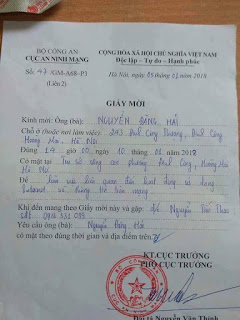 BỘ CÔNG AN CỘNG HÒA XÃ HỘI CHỦ NGHĨA VIỆT NAM
CỤC AN NINH MẠNG Độc lập - Tự do - Hạnh phúc
Số: 47 /GM-A68-P3 Hà Nội, ngày 05 tháng 01 năm 2018
(Liên 2)
GIẤY MỜI
Kính mời: Ông (bà): NGUYỄN ĐĂNG HẢI
Chỗ ở (hoặc nơi làm việc):
Hoàng Mai - Hà Nội
Đúng 14 giờ 00, ngày 10 tháng 01 năm 2018
Có mặt tại Trụ sở công an phường Hoàng Mai
Hà Nội
Để làm việc liên quan đến hoạt động sử dụng
Internet
Khi đến mang theo Giấy mời này và gặp: đ/c Nguyễn
Yêu cầu ông (bà) Nguyễn Đăng Hải
có mặt theo đúng thời gian và địa điểm trên./.
KT.CỤC TRƯỞNG
PHÓ CỤC TRƯỞNG
Đại tá Nguyễn Văn Thỉnh